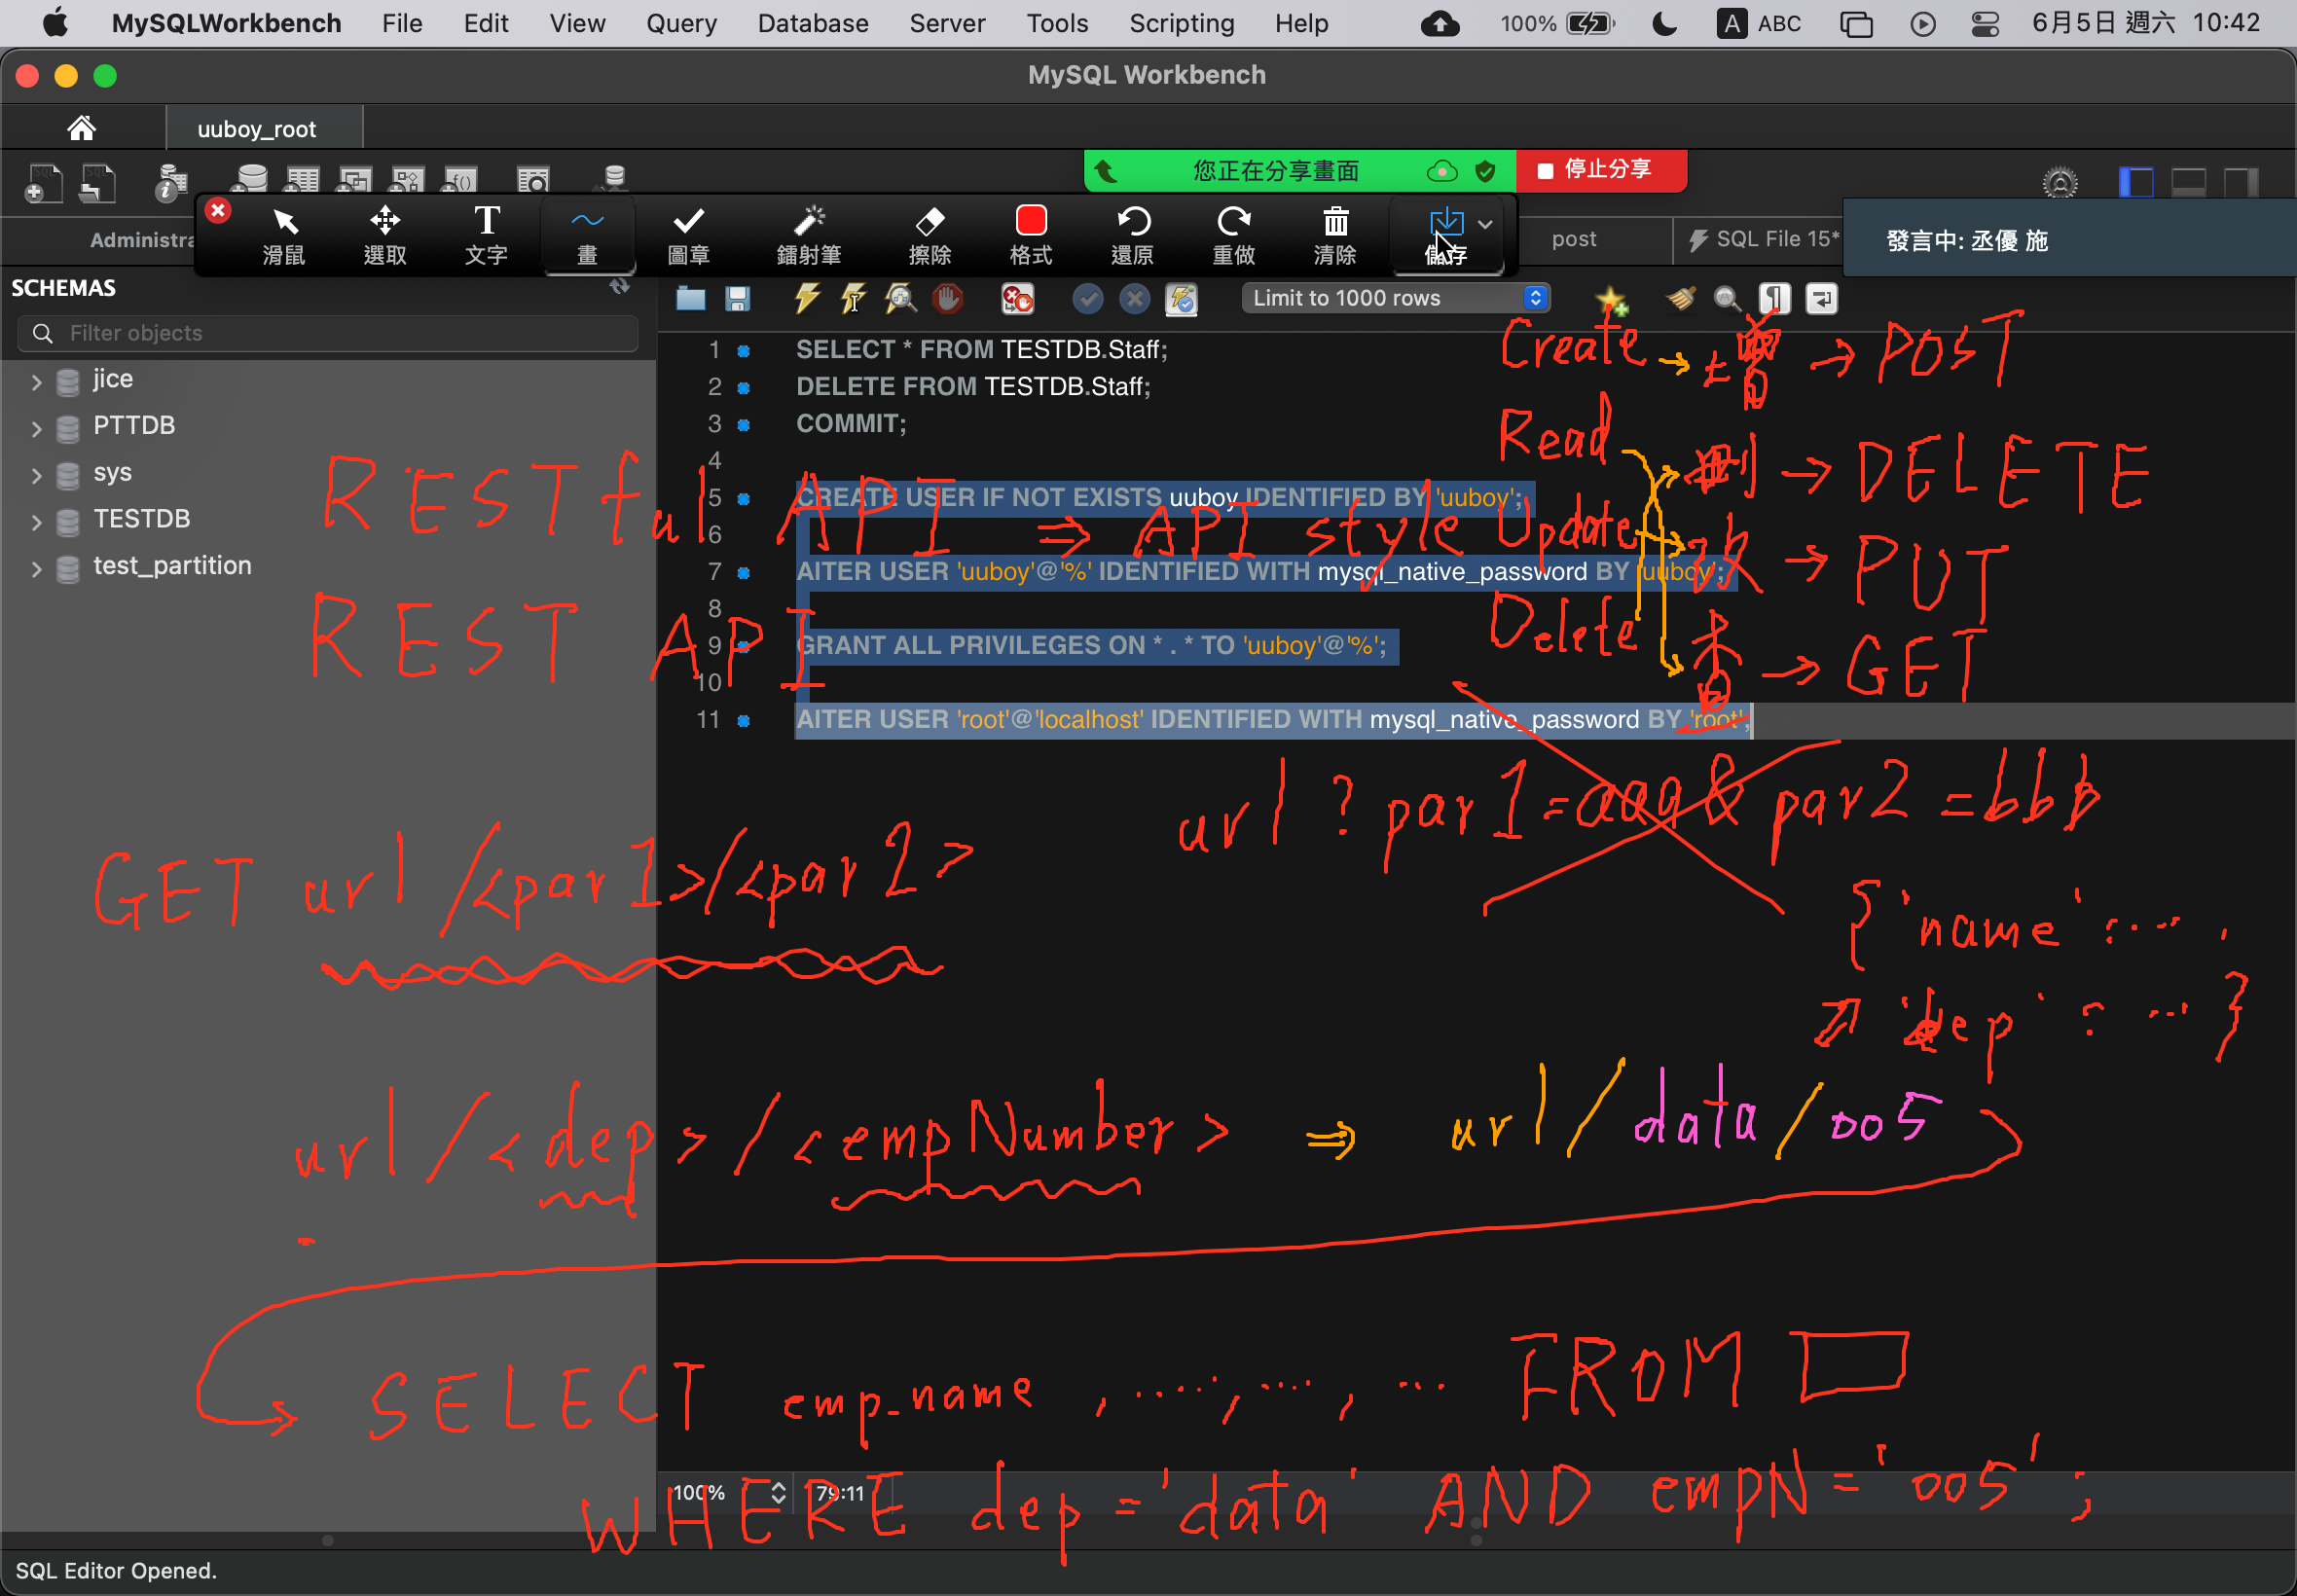 MySQLWorkbench File Edit View Query Database Server Tools Scripting Help 100% A ABC 6月5日 週六 10:42
MySQL Workbench
uuboy_root
您正在分享畫面 停止分享
滑鼠 選取 文字 畫 圖章 鐳射筆 擦除 格式 還原 重做 清除 儲存
Administra post SQL File 15* 發言中: 丞優 施
SCHEMAS
Filter objects
Limit to 1000 rows
jice
PTTDB
sys
TESTDB
test_partition
1 SELECT * FROM TESTDB.Staff;
2 DELETE FROM TESTDB.Staff;
3 COMMIT;
4
5 CREATE USER IF NOT EXISTS uuboy IDENTIFIED BY 'uuboy';
6
7 AlTER USER 'uuboy'@'%' IDENTIFIED WITH mysql_native_password BY 'uuboy';
8
9 GRANT ALL PRIVILEGES ON * . * TO 'uuboy'@'%';
10
11 AlTER USER 'root'@'localhost' IDENTIFIED WITH mysql_native_password BY 'root';
Create → 增 → POST
Read 刪 → DELETE
Update 改 → PUT
Delete 查 → GET
RESTful API ⇒ API style
REST API
url ? par1=aaa & par2=bbb
GET url/<par1>/<par2>
{'name': ... ,
'dep' : ... }
url/<dep>/<empNumber> ⇒ url/data/005
SELECT emp_name , ...., ..., ... FROM
WHERE dep='data' AND empN='005';
100% 79:11
SQL Editor Opened.